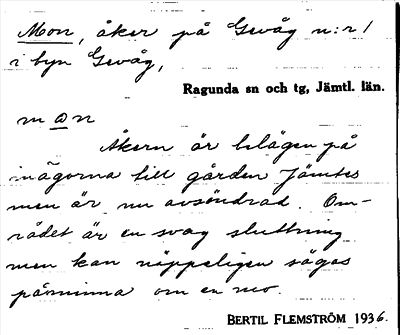 Mon, åker på Gevåg n:r 1
i byn Gevåg,
Ragunda sn och tg, Jämtl. län.
man
Åkern är belägen på
inägorna till gården Jämtes
men är nu avsöndrad. Om-
rådet är en svag sluttning
men kan näppeligen sägas
påminna om en mo.
BERTIL FLEMSTRÖM 1936.